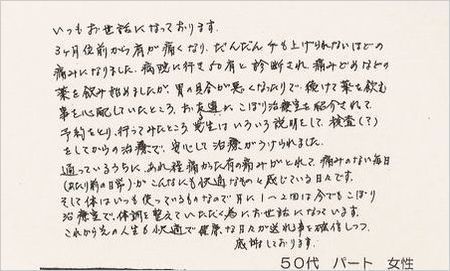 いつもお世話になっております。
3ヶ月位前から肩が痛くなり、だんだん手も上げられないほどの
痛みになりました。病院に行き50肩と診断され、痛みどめなどの
薬を飲み始めましたが、胃の具合が悪くなったりで、続けて薬を飲む
事を心配していたところ、お友達に、こばり治療室を紹介されて
予約をとり、行ってみたところ先生はいろいろ説明をして、検査(?)
をしてからの治療で、安心して治療がうけられました。
通っているうちに、あれ程痛かった肩の痛みがとれて、痛みのない毎日
(あたり前の日常)がこんなにも快適なものと感じている日々です。
そして体はいつも使っているものなので月に1〜2回は今でもこばり
治療室で、体調を整えていただく為にお世話になっています。
これから先の人生も快適で健康な日々が送れる事を確信しつつ、
感謝しております。
50代 パート 女性